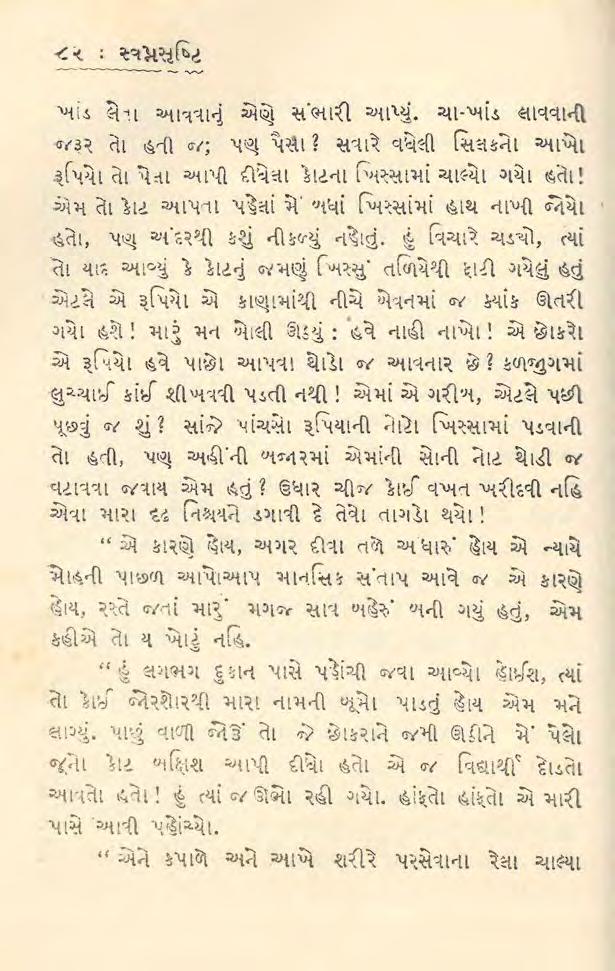 ૮૨ : સ્વપ્નસૃષ્ટિ
ખાંડ લેતા આવવાનું એણે સંભારી આપ્યું. ચા-ખાંડ લાવવાની
જરૂર તો હતી જ; પણ પૈસા ? સવારે વધેલી સિલકનો આખો
રૂપિયો તો પેલા આપી દીધેલા કોટના ખિસ્સામાં ચાલ્યો ગયો હતો!
એમ તો કોટ આપતા પહેલાં મેં બધાં ખિસ્સાંમાં હાથ નાખી જોયો
હતો, પણ અંદરથી કશું નીકળ્યું નહોતું. હું વિચારે ચડ્યો, ત્યાં
તો યાદ આવ્યું કે કોટનું જમણું ખિસ્સું તળિયેથી ફાટી ગયેલું હતું
એટલે એ રૂપિયો એ કાણામાંથી નીચે એવનમાં જ ક્યાંક ઊતરી
ગયો હશે! મારું મન બોલી ઊઠયું : હવે નાહી નાખો! એ છોકરો
એ રૂપિયો હવે પાછો આપવા થોડો જ આવનાર છે? કળજુગમાં
લુચ્ચાઈ કાંઈ શીખવવી પડતી નથી! એમાં એ ગરીબ, એટલે પછી
પૂછવું જ શું? સાંજે પાંચસો રૂપિયાની નોટો ખિસ્સામાં પડવાની
તો હતી, પણ અહીંની બજારમાં એમાંની સોની નોટ થોડી જ
વટાવવા જવાય એમ હતું? ઉધાર ચીજ કોઈ વખત ખરીદવી નહિ
એવા મારા દૃઢ નિશ્ચયને ડગાવી દે તેવો તાગડો થયો!
“ એ કારણે હોય, અગર દીવા તળે અંધારું હોય એ ન્યાયે
મોહની પાછળ આપોઆપ માનસિક સંતાપ આવે જ એ કારણે
હોય, રસ્તે જતાં મારું મગજ સાવ બહેરું બની ગયું હતું, એમ
કહીએ તો ય ખોટું નહિ.
“ હું લગભગ દુકાન પાસે પહોંચી જવા આવ્યો હોઈશ, ત્યાં
તો કોઈ જોરશોરથી મારા નામની બૂમો પાડતું હોય એમ મને
લાગ્યું. પાછું વાળી જોઉં તો જે છોકરાને જમી ઊઠીને મેં પેલો
જૂનો કોટ બક્ષિશ આપી દીધો હતો એ જ વિદ્યાર્થી દોડતો
આવતો હતો! હું ત્યાં જ ઊભો રહી ગયો. હાંફતો હાંફતો એ મારી
પાસે આવી પહોંચ્યો.
“ એને કપાળે અને આખે શરીરે પરસેવાના રેલા ચાલ્યા